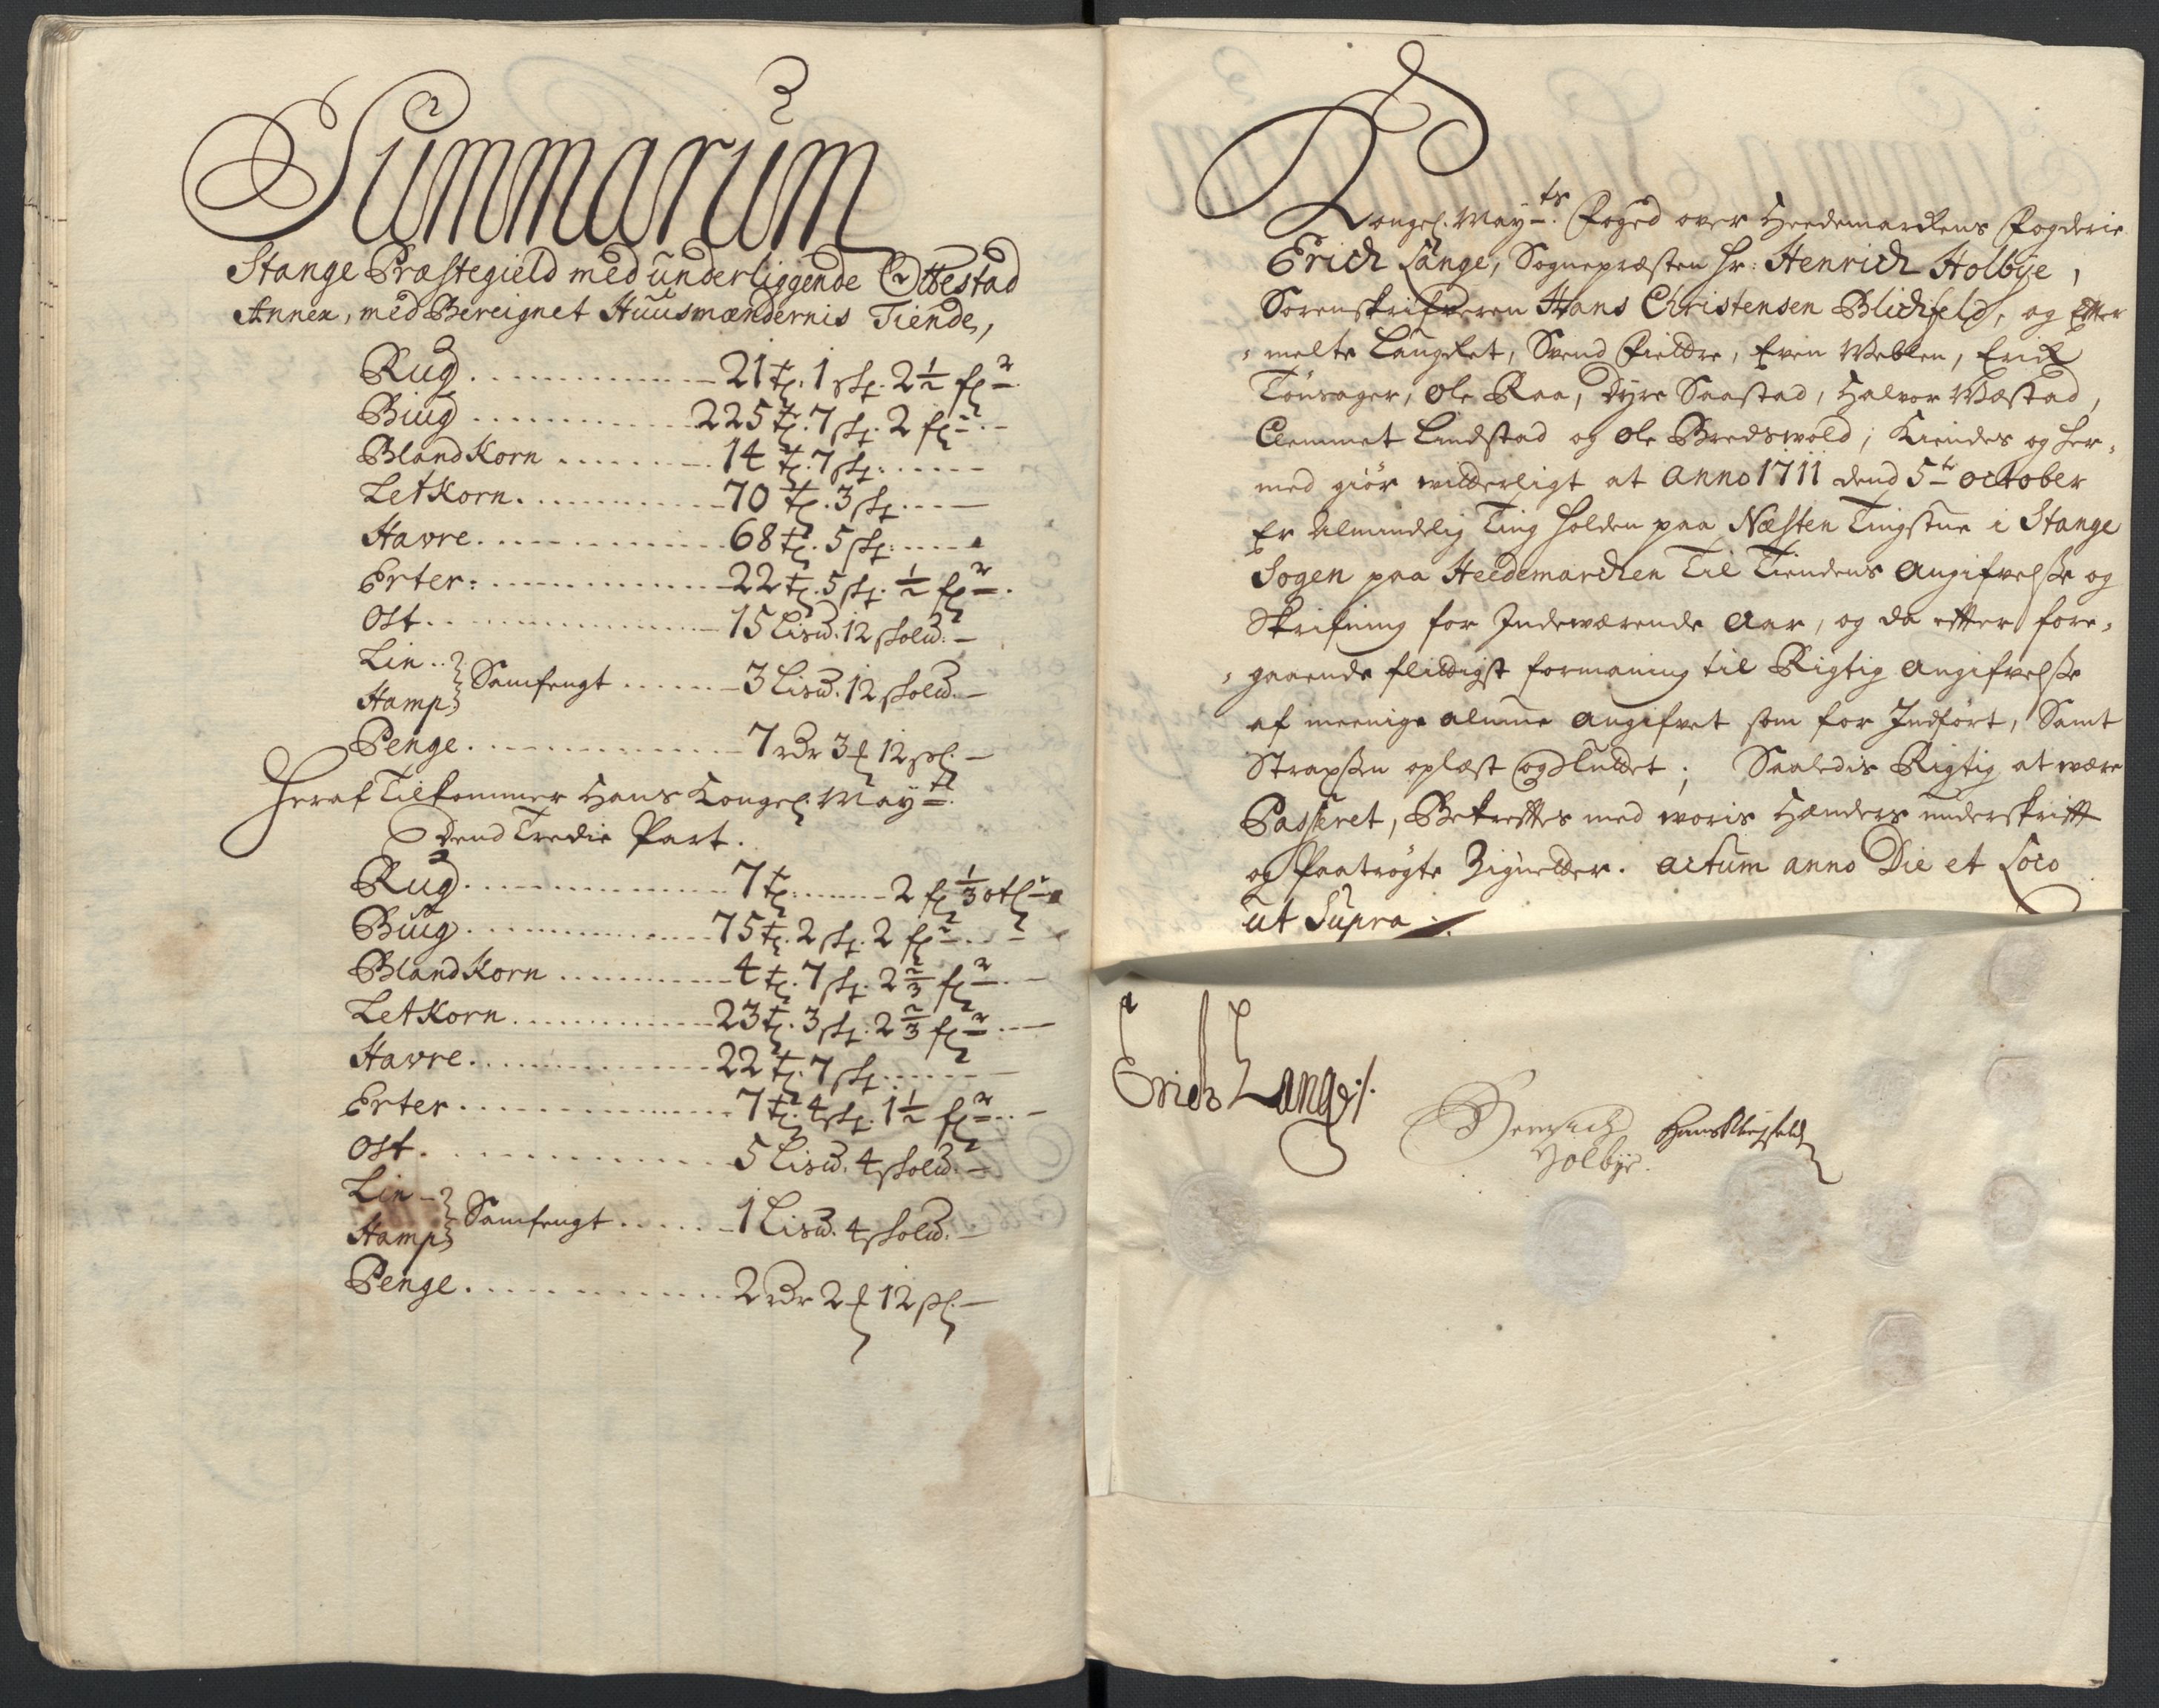 Summarum
Stange Præstegield med underliggende Ottestad
Annex, med Bereignet Huusmændernis Tiende,
Rug 21 tr. 1 skr. 2½ fr
Biug 225 tr. 7 skr. 2 fr
Bland Korn 14 tr. 7 skr.
Let Korn 70 tr. 3 skr.
Havre 68 tr. 5 skr.
Erter 22 tr. 5 skr. ½ fr
Ost 15 Lisd. 12 skold.
Lin
Samfengt 3 Lisd. 12 skold.
Hamp
Penge 7 rdr 3 12 sk.
Heraf Tilkommer Hans Kongel. May.tt
Dend Tredie Part.
Rug 7 tr. 2 fr ⅓
Biug 75 tr. 2 skr. 2 fr
Bland Korn 4 tr. 7 skr. 2⅔ fr
Let Korn 23 tr. 3 skr. 2⅔ fr
Havre 22 tr. 7 skr.
Erter 7 tr. 4 skr. 1½ fr
Ost 5 Lisd. 4 skold.
Lin
Samfengt 1 Lisd. 4 skold.
Hamp
Penge 2 rdr 2 12 sk.
Kongel. May.ts Foged over Heedemarckens Fogderie
Erich Lange, Sognepræsten Hr: Henrich Holbye,
Sorenskrifveren Hans Christensen Blichfeld, og Efter
melte Laugret, Svend Fieldre, Even Weblen, Erick
Tønsager, Ole Raa, Dyre Saastad, Halvor Wæstad,
Clemmet Lindstad og Ole Bredswold; Kiendes og her-
med giør witterligt at Anno 1711 dend 5te october
Er Almindelig Ting holden paa Næsten Tingstue i Stange
Sogen paa Heedemarchen Til Tiendens Angifvelsse og
Skrifning for Indeværende Aar, og da etter fore-
gaaende flittigst formaning til Rigtig Angifvelsse
af meenige almue angifvet som for Indført, Samt
Strapssen oplæst og sluttet; Saaledis Rigtig at være
Passeret, Bekrefftes med woris Hænders underskrifft
og Paatrögte Zigneter. Actum anno Die et Loco
ut Supra
Erich Lange
Henrich Hans Blichfeld
Holbye.